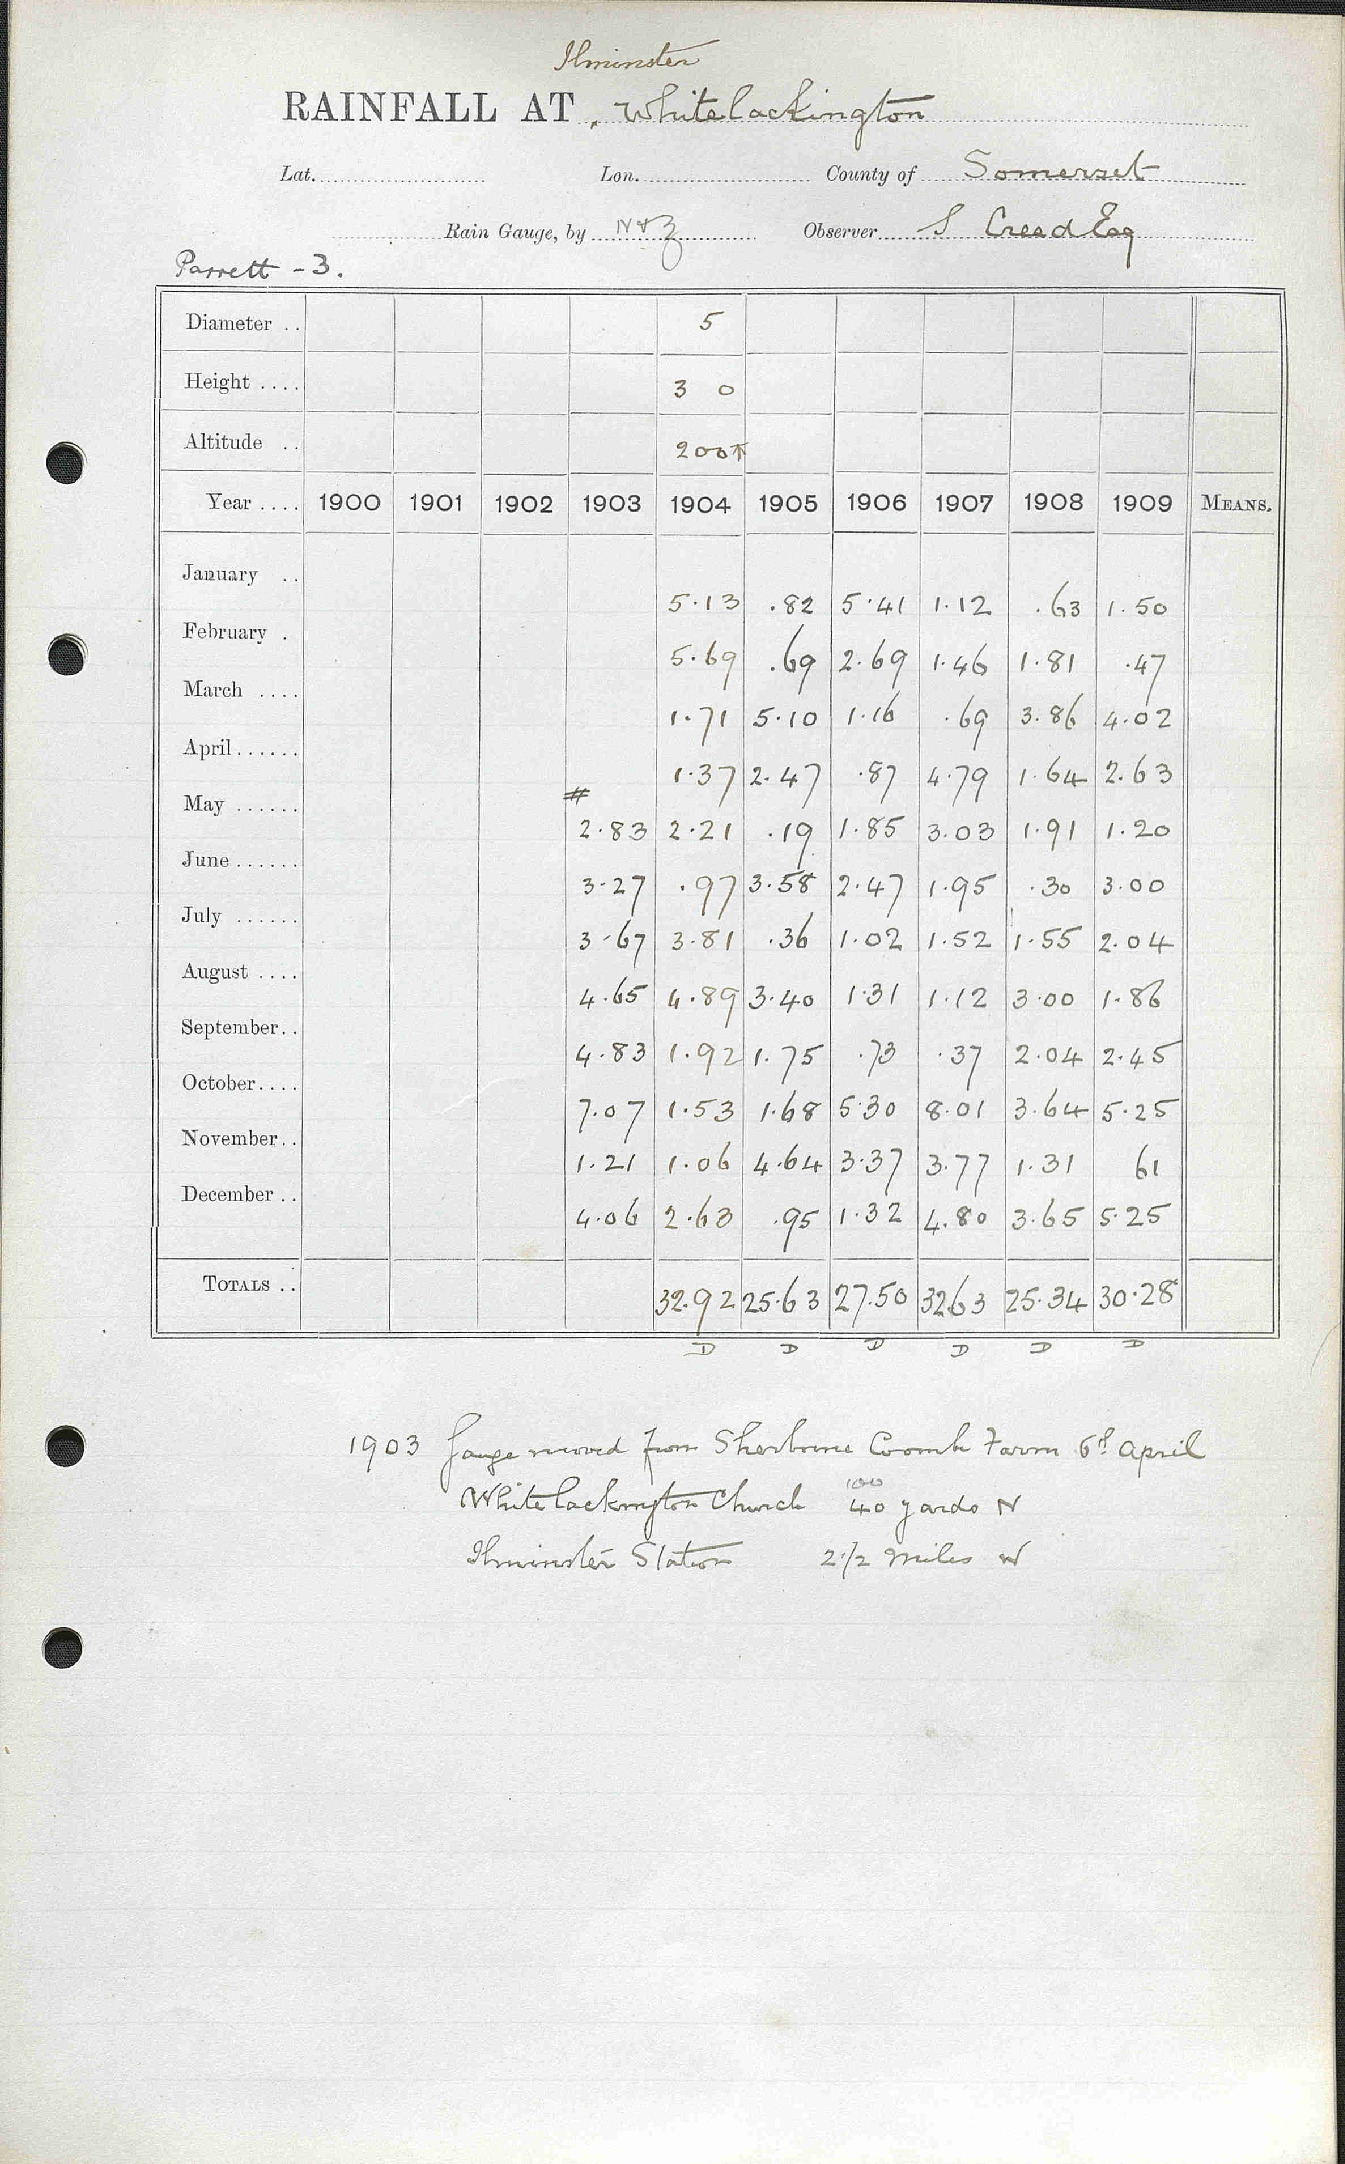 Ilminster
RAINFALL AT Whitelackington
Lat. Lon. County of Somerset
Rain Gauge, by N&Z Observer S Creed Esq
Parrett - 3.
Diameter .. 5
Height .... 3 0
Altitude .. 200
Year .... 1900 1901 1902 1903 1904 1905 1906 1907 1908 1909 MEANS.
January .. 5.13 .82 5.41 1.12 .63 1.50
February . 5.69 .69 2.69 1.46 1.81 .47
March .... 1.71 5.10 1.16 .69 3.86 4.02
April...... 1.37 2.47 .87 4.79 1.64 2.63
#
May ...... 2.83 2.21 .19 1.85 3.03 1.91 1.20
June ...... 3.27 .97 3.58 2.47 1.95 .30 3.00
July ...... 3.67 3.81 .36 1.02 1.52 1.55 2.04
August .... 4.65 4.89 3.40 1.31 1.12 3.00 1.86
September.. 4.83 1.92 1.75 .73 .37 2.04 2.45
October.... 7.07 1.53 1.68 5.30 8.01 3.64 5.25
November.. 1.21 1.06 4.64 3.37 3.77 1.31 61
December .. 4.06 2.63 .95 1.32 4.80 3.65 5.25
TOTALS .. 32.92 25.63 27.50 32.63 25.34 30.28
D D D D D D
1903 Gauge moved from Sherborne Coomb Farm 6th April
100
Whitelackington Church 40 yards N
Ilminster Station 2 1/2 miles W